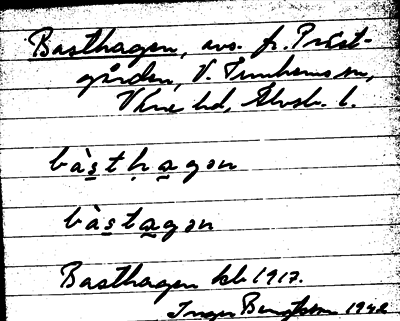 Basthagen, avs. fr. Präst-
gården, V. Tunhems sn,
Väne hd, Älvsb. l.
bàsthagən
bàstagən
Basthagen kb 1917.
Inger Bengtsson 1942